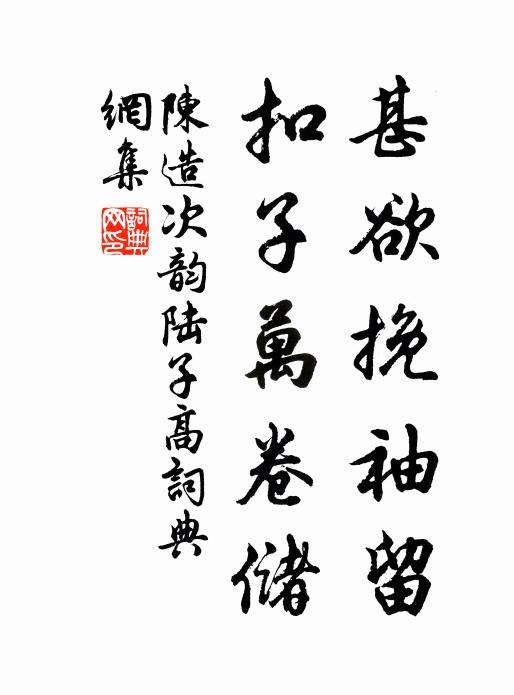 甚欲挽袖留
扣子萬卷儲
陳造次韵陆子高詞典
網集
詞典
网印